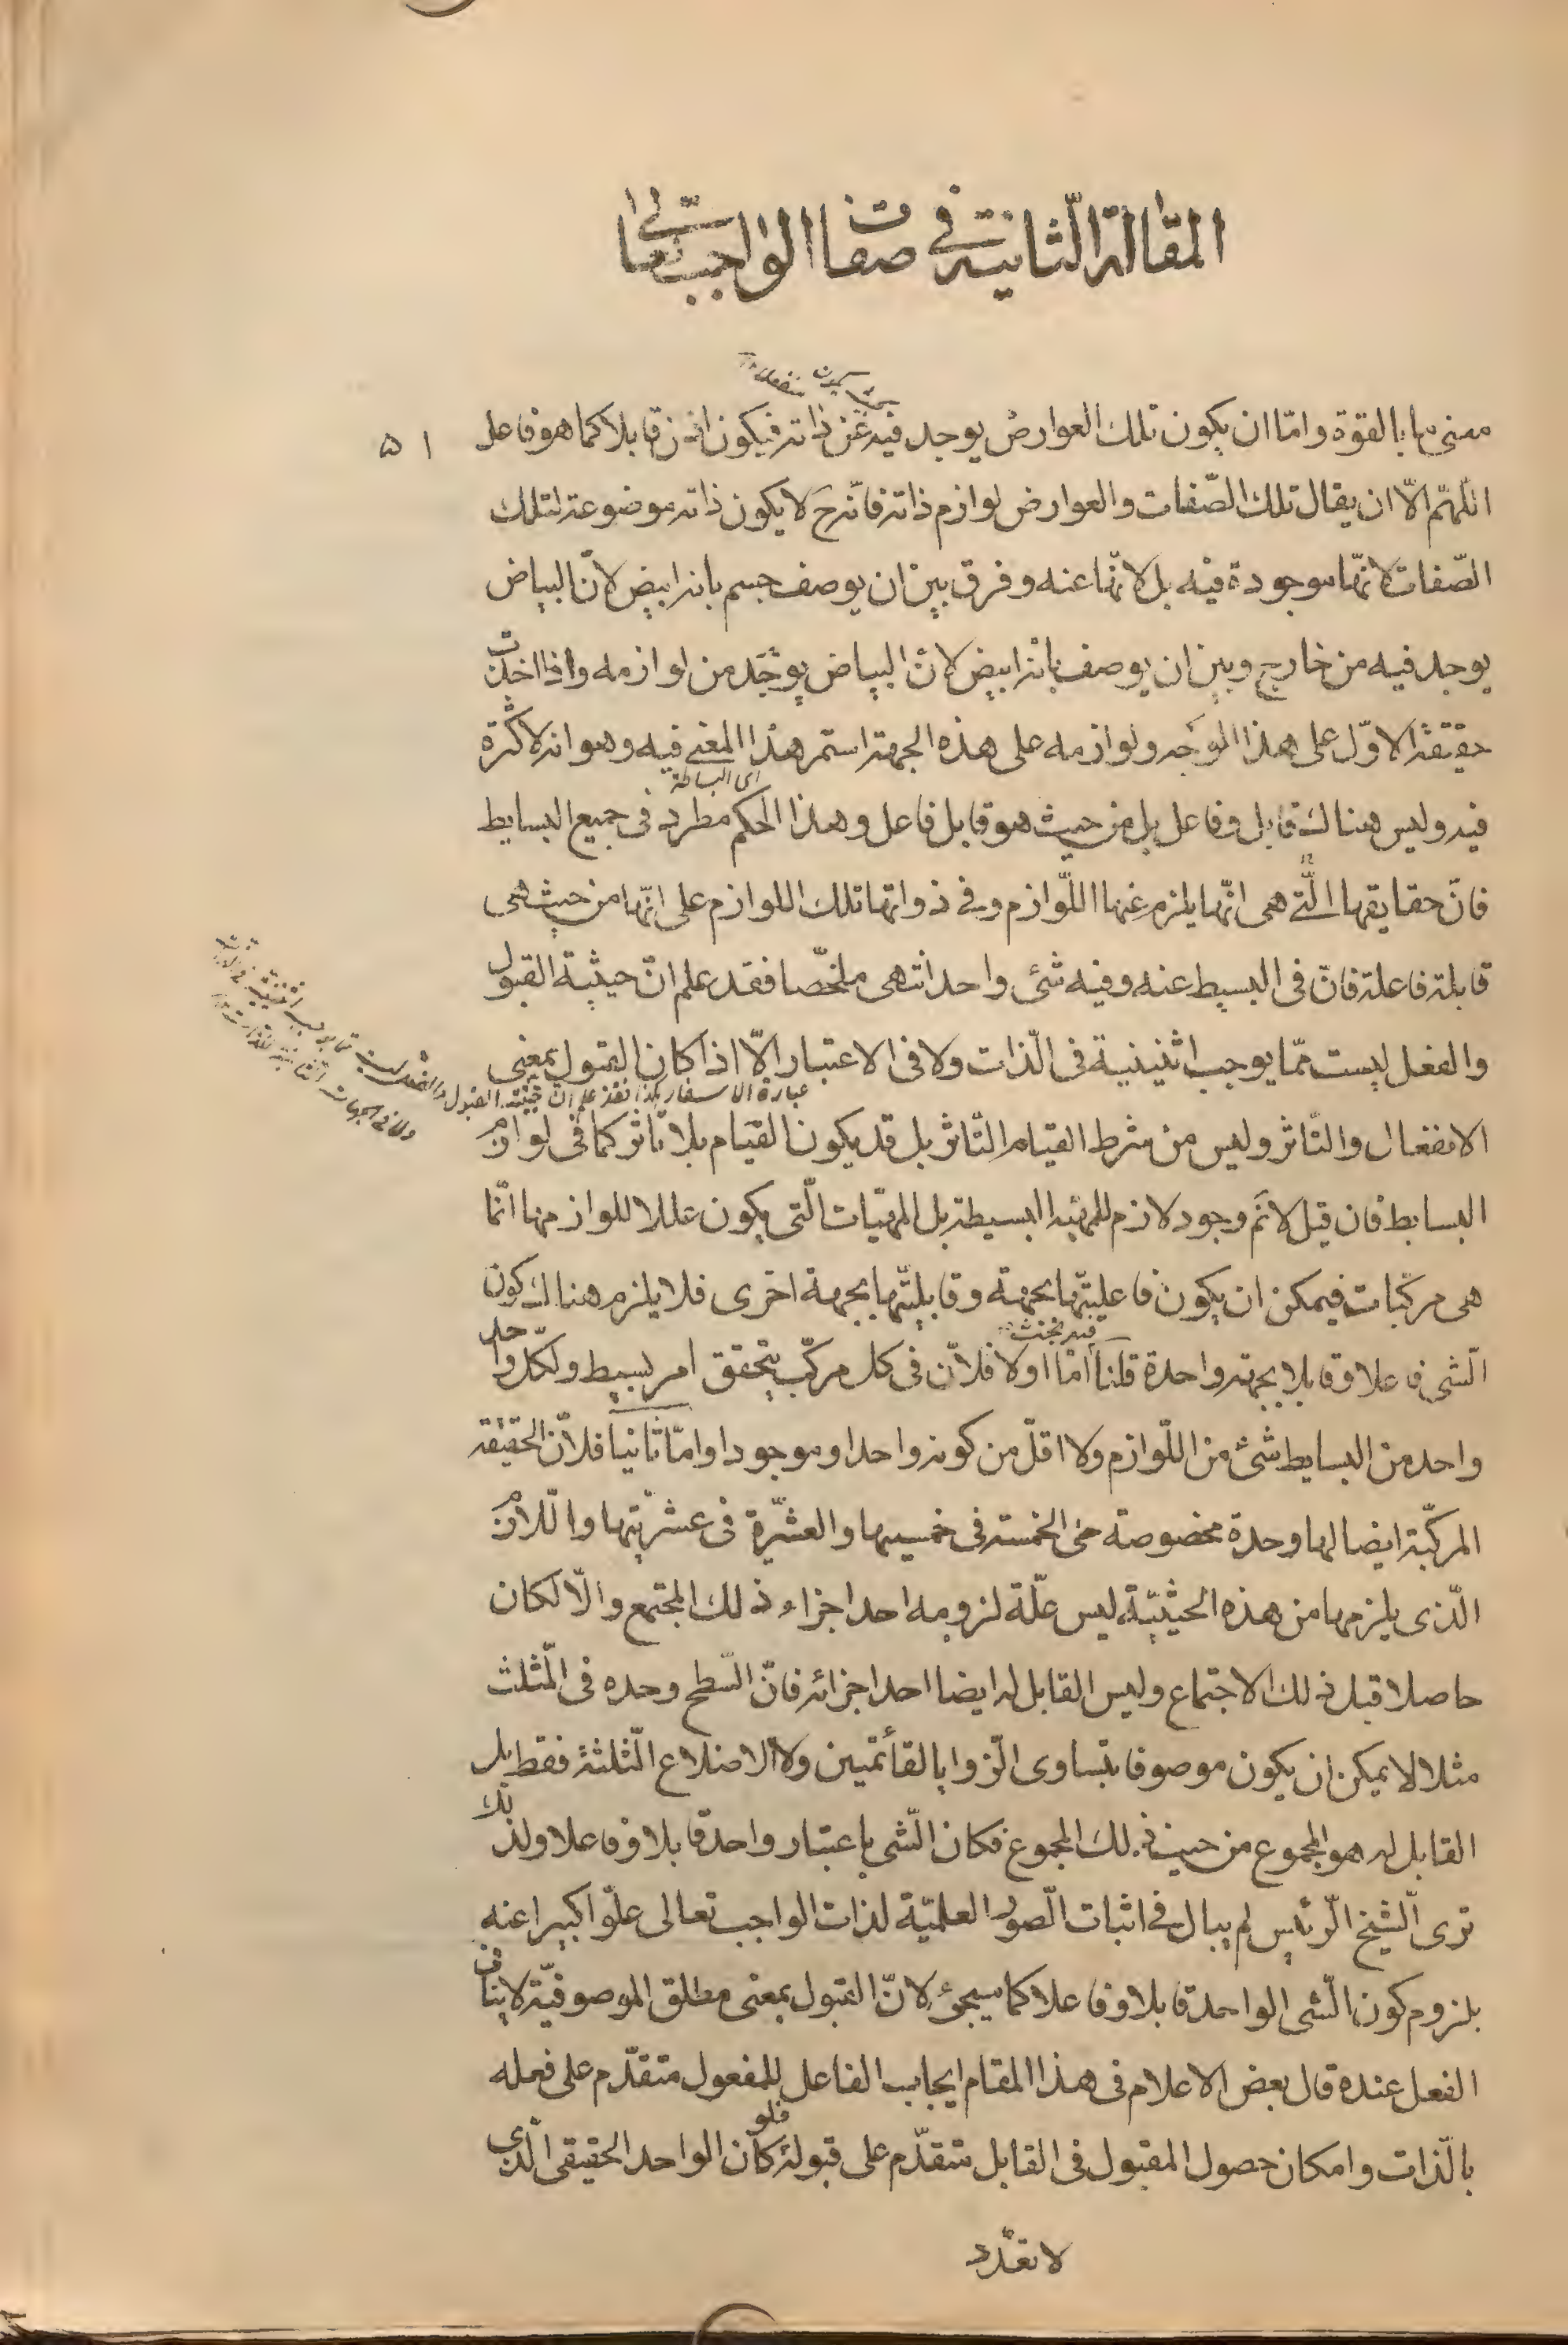 المقالة الثانية في صفات الواجب تعالى
معنى ما بالقوة وامّا ان يكون تلك العوارض يوجد فيه عن ذاته فيكون اذن قابلا كما هو فاعل
٥١
اللّهمّ الّا ان يقال تلك الصّفات والعوارض لوازم ذاته فانّه ح لا يكون ذاته موضوعة لتلك
الصّفات لانّها موجودة فيه بل لانّها عنه وفرق بين ان يوصف جسم بانه ابيض لانّ البياض
يوجد فيه من خارج وبين ان يوصف بانه ابيض لانّ البياض يوجد من لوازمه واذا اخذت
حقيقة الاوّل على هذا الوجه ولوازمه على هذه الجهة استمر هذا المعنى فيه وهو انه لا كثرة
اى البساطة
فيه وليس هناك قابل وفاعل بل من حيث هو قابل فاعل وهذا الحكم مطرد فى جميع البسايط
فانّ حقايقها الّتى هى انّها يلزم عنها اللّوازم وفي ذواتها تلك اللوازم على انّها من حيث هى
قابلة فاعلة فانّ فى البسيط عنه وفيه شئ واحد انتهى ملخّصا فقد علم انّ حيثية القبول
والفعل ليست ممّا يوجب اثنينية فى الّذات ولا فى الاعتبار الّا اذا كان القبول بمعنى
عبارة الاسفار هكذا فقد علم انّ حيثية القبول والفعل ليست مما يوجب اثنينية فى الذات
ولا فى الجهات
الانفعال والتّاثر وليس من شرط القيام التّاثر بل قد يكون القيام بلا تاثر كما في لوازم
البسايط فان قيل لا نم وجود لازم للمهيّة البسيطة بل المهيّات الّتى يكون عللا للوازمها انّما
هى مركبات فيمكن ان يكون فاعليّتها بجهة وقابليّتها بجهة اخرى فلا يلزم هناك كون
الّشى فاعلا وقابلا بجهة واحدة قلنا امّا اولا فلانّ فى كل مركّب يتحقق امر بسيط ولكلّ واحد
واحد من البسايط شئ من اللّوازم ولا اقلّ من كونه واحدا وموجودا وامّا ثانيا فلانّ الحقيقة
المركّبة ايضا لها وحدة مخصوصة حتى الخمسة فى خمسيتها والعشرة فى عشريّتها واللّازم
الّذى يلزمها من هذه الحيثيّة ليس علّة لزومه احد اجزاء ذلك المجتمع والّا لكان
حاصلا قبل ذلك الاجتماع وليس القابل له ايضا احد اجزائه فانّ السّطح وحده فى المّثلث
مثلا لا يمكن ان يكون موصوفا بتساوى الّزوايا بالقائمتين ولا الاضلاع الّثلثة فقط بل
القابل له هو المجموع من حيث ذلك المجموع فكان الّشى باعتبار واحد قابلا وفاعلا ولذلك
ترى الّشيخ الّرئيس لم يبال في اثبات الّصور العلميّة لذات الواجب تعالى علوّا كبيرا عنه
بلزوم كون الّشى الواحد قابلا وفاعلا كما سيجئ لانّ القبول بمعنى مطلق الموصوفيّة لا ينافى
الفعل عنده قال بعض الاعلام فى هذا المقام ايجاب الفاعل للمفعول متقدّم على فعله
بالّذات وامكان حصول المقبول فى القابل متقدّم على قبوله فلو كان الواحد الحقيقى الّذى
لا تعدّد